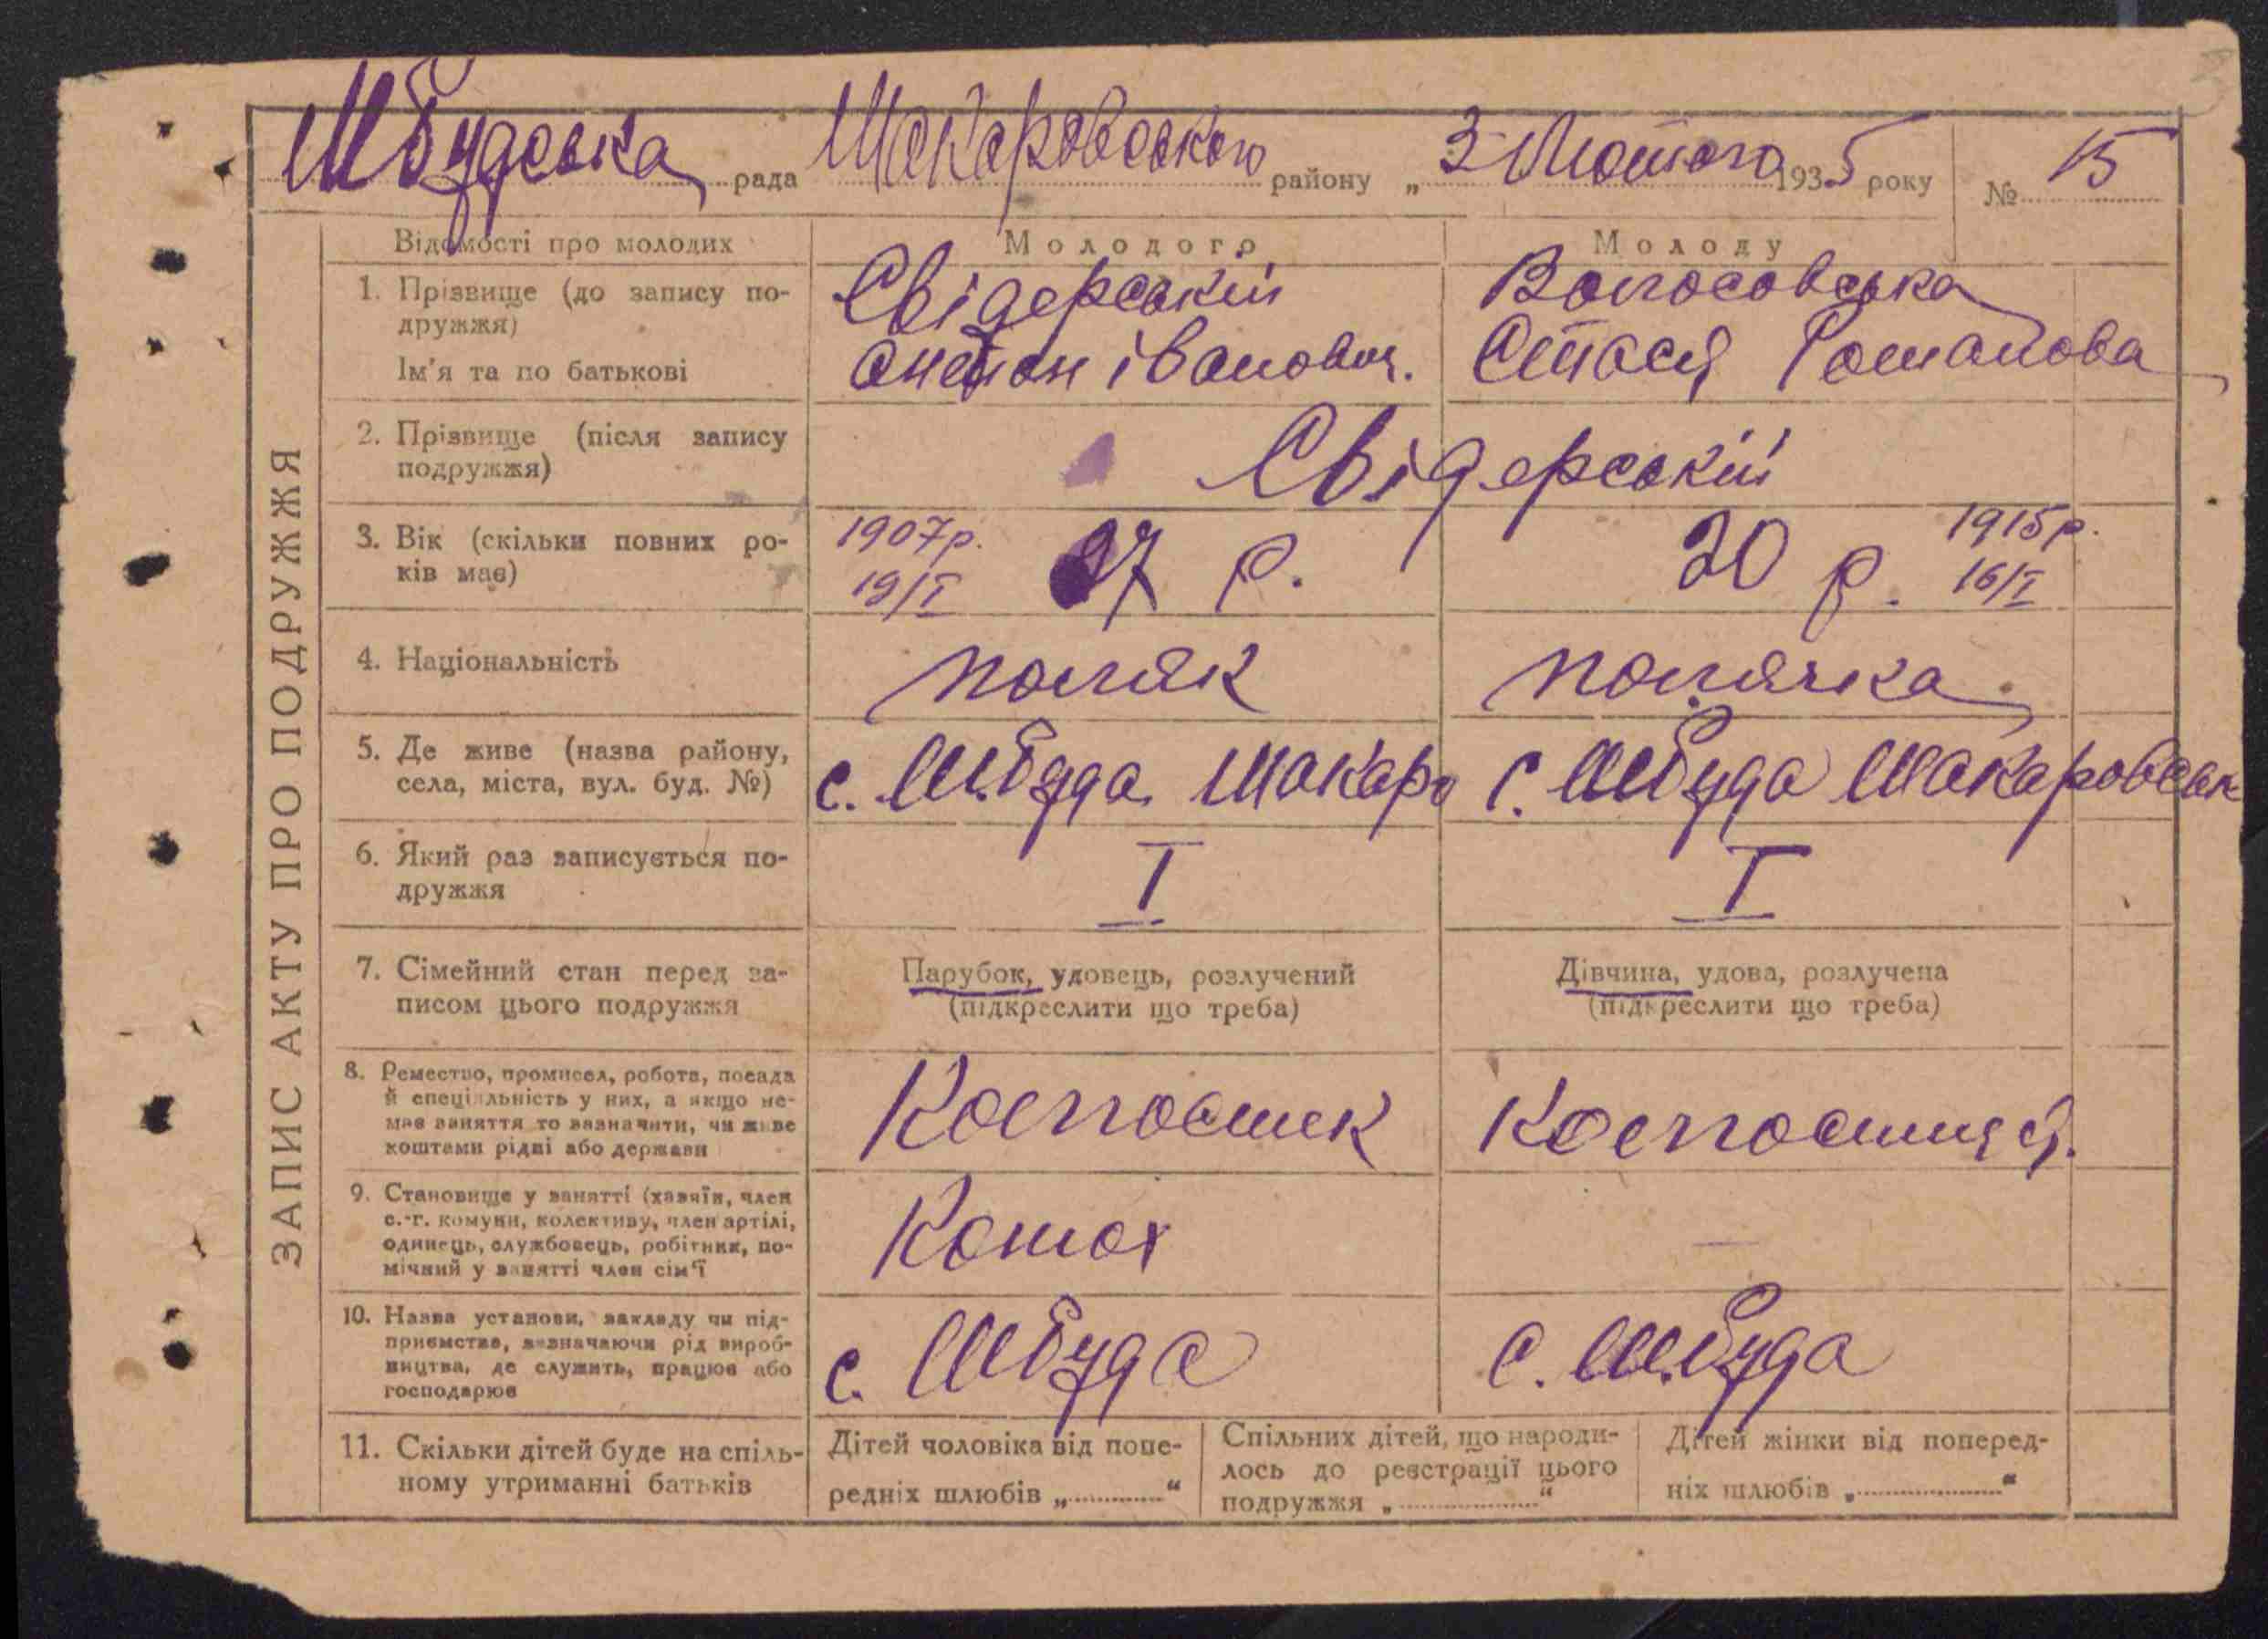 М Будська рада Макаровського району „ 3 Лютого 1935 року № 15
ЗАПИС АКТУ ПРО ПОДРУЖЖЯ
Відомості про молодих
Молодого
Молоду
1. Прізвище (до запису по-
дружжя)
Ім'я та по батькові
Свідерський
Іванович.
Волосовська
Стася Романова
2. Прізвище (після запису
подружжя)
Свідерській
3. Вік (скільки повних ро-
ків має)
1907р.
19/I
27 р.
20 р.
1915р.
16/I
4. Національність
поляк
полячка
5. Де живе (назва району,
села, міста, вул. буд. №)
с. М.Буда Макаро
с. М Буда Макаровськ
6. Який раз записується по-
дружжя
I
I
7. Сімейний стан перед за-
писом цього подружжя
Парубок, удовець, розлучений
(підкреслити що треба)
Дівчина, удова, розлучена
(підкреслити що треба)
8. Ремество, промисел, робота, посада
й спеціяльність у них, а якщо не-
має заняття то зазначити, чи живе
коштами рідні або держави
Колгоспник
9. Становище у занятті (хазяїн, член
с.-г. комуни, колективу, член артілі,
одинець, службовець, робітник, по-
мічний у занятті член сім'ї
—
10. Назва установи, закладу чи під-
приємства, зазначаючи рід вироб-
ництва, де служить, працює або
господарює
с. М Буда
с. М.Буда
11. Скільки дітей буде на спіль-
ному утриманні батьків
Дітей чоловіка від попе-
редніх шлюбів „ “
Спільних дітей, що народи-
лось до реєстрації цього
подружжя „ “
Дітей жінки від поперед-
ніх шлюбів „ “